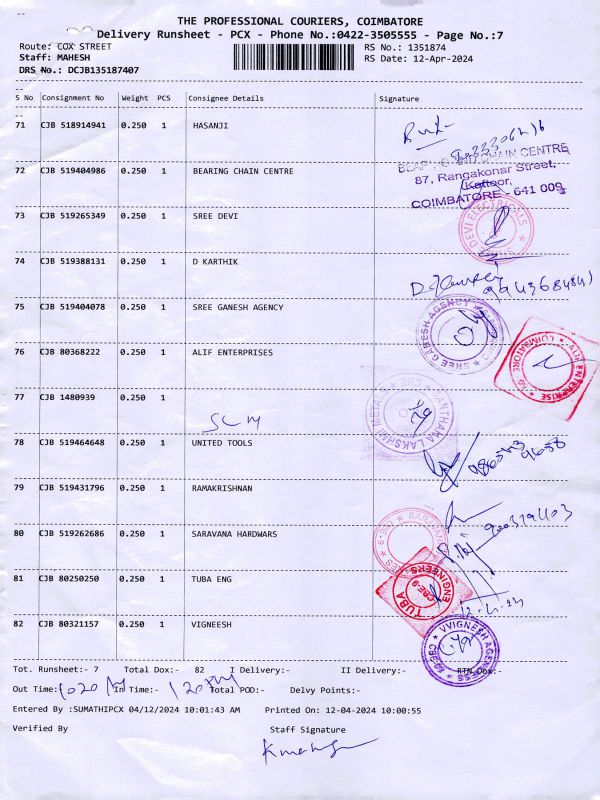 THE PROFESSIONAL COURIERS, COIMBATORE
Delivery Runsheet - PCX - Phone No.:0422-3505555 - Page No.:7
Route: COX STREET RS No.: 1351874
Staff: MAHESH RS Date: 12-Apr-2024
DRS No.: DCJB135187407
S No Consignment No Weight PCS Consignee Details Signature
71 CJB 518914941 0.250 1 HASANJI
72 CJB 519404986 0.250 1 BEARING CHAIN CENTRE
CHAIN CENTRE
87, Rangakonar Street,
Kattoor,
COIMBATORE - 641 009
73 CJB 519265349 0.250 1 SREE DEVI
DEVI ELECTRICALS
74 CJB 519388131 0.250 1 D KARTHIK
75 CJB 519404078 0.250 1 SREE GANESH AGENCY
SREE GANESH AGENCY
76 CJB 80368222 0.250 1 ALIF ENTERPRISES
COIMBATORE
77 CJB 1480939 0.250 1
SCM
LAKSHMI METAL
78 CJB 519464648 0.250 1 UNITED TOOLS
79 CJB 519431796 0.250 1 RAMAKRISHNAN
80 CJB 519262686 0.250 1 SARAVANA HARDWARS
81 CJB 80250250 0.250 1 TUBA ENG
TUBA ENGINEERS
CBE-9
12-4-24
82 CJB 80321157 0.250 1 VIGNEESH
VVIGNESH AGENCIES
Tot. Runsheet:- 7 Total Dox:- 82 I Delivery:- II Delivery:- RTN Dox:-
Out Time: 1020 AM In Time:- 120 PM Total POD:- Delvy Points:-
Entered By :SUMATHIPCX 04/12/2024 10:01:43 AM Printed On: 12-04-2024 10:00:55
Verified By Staff Signature